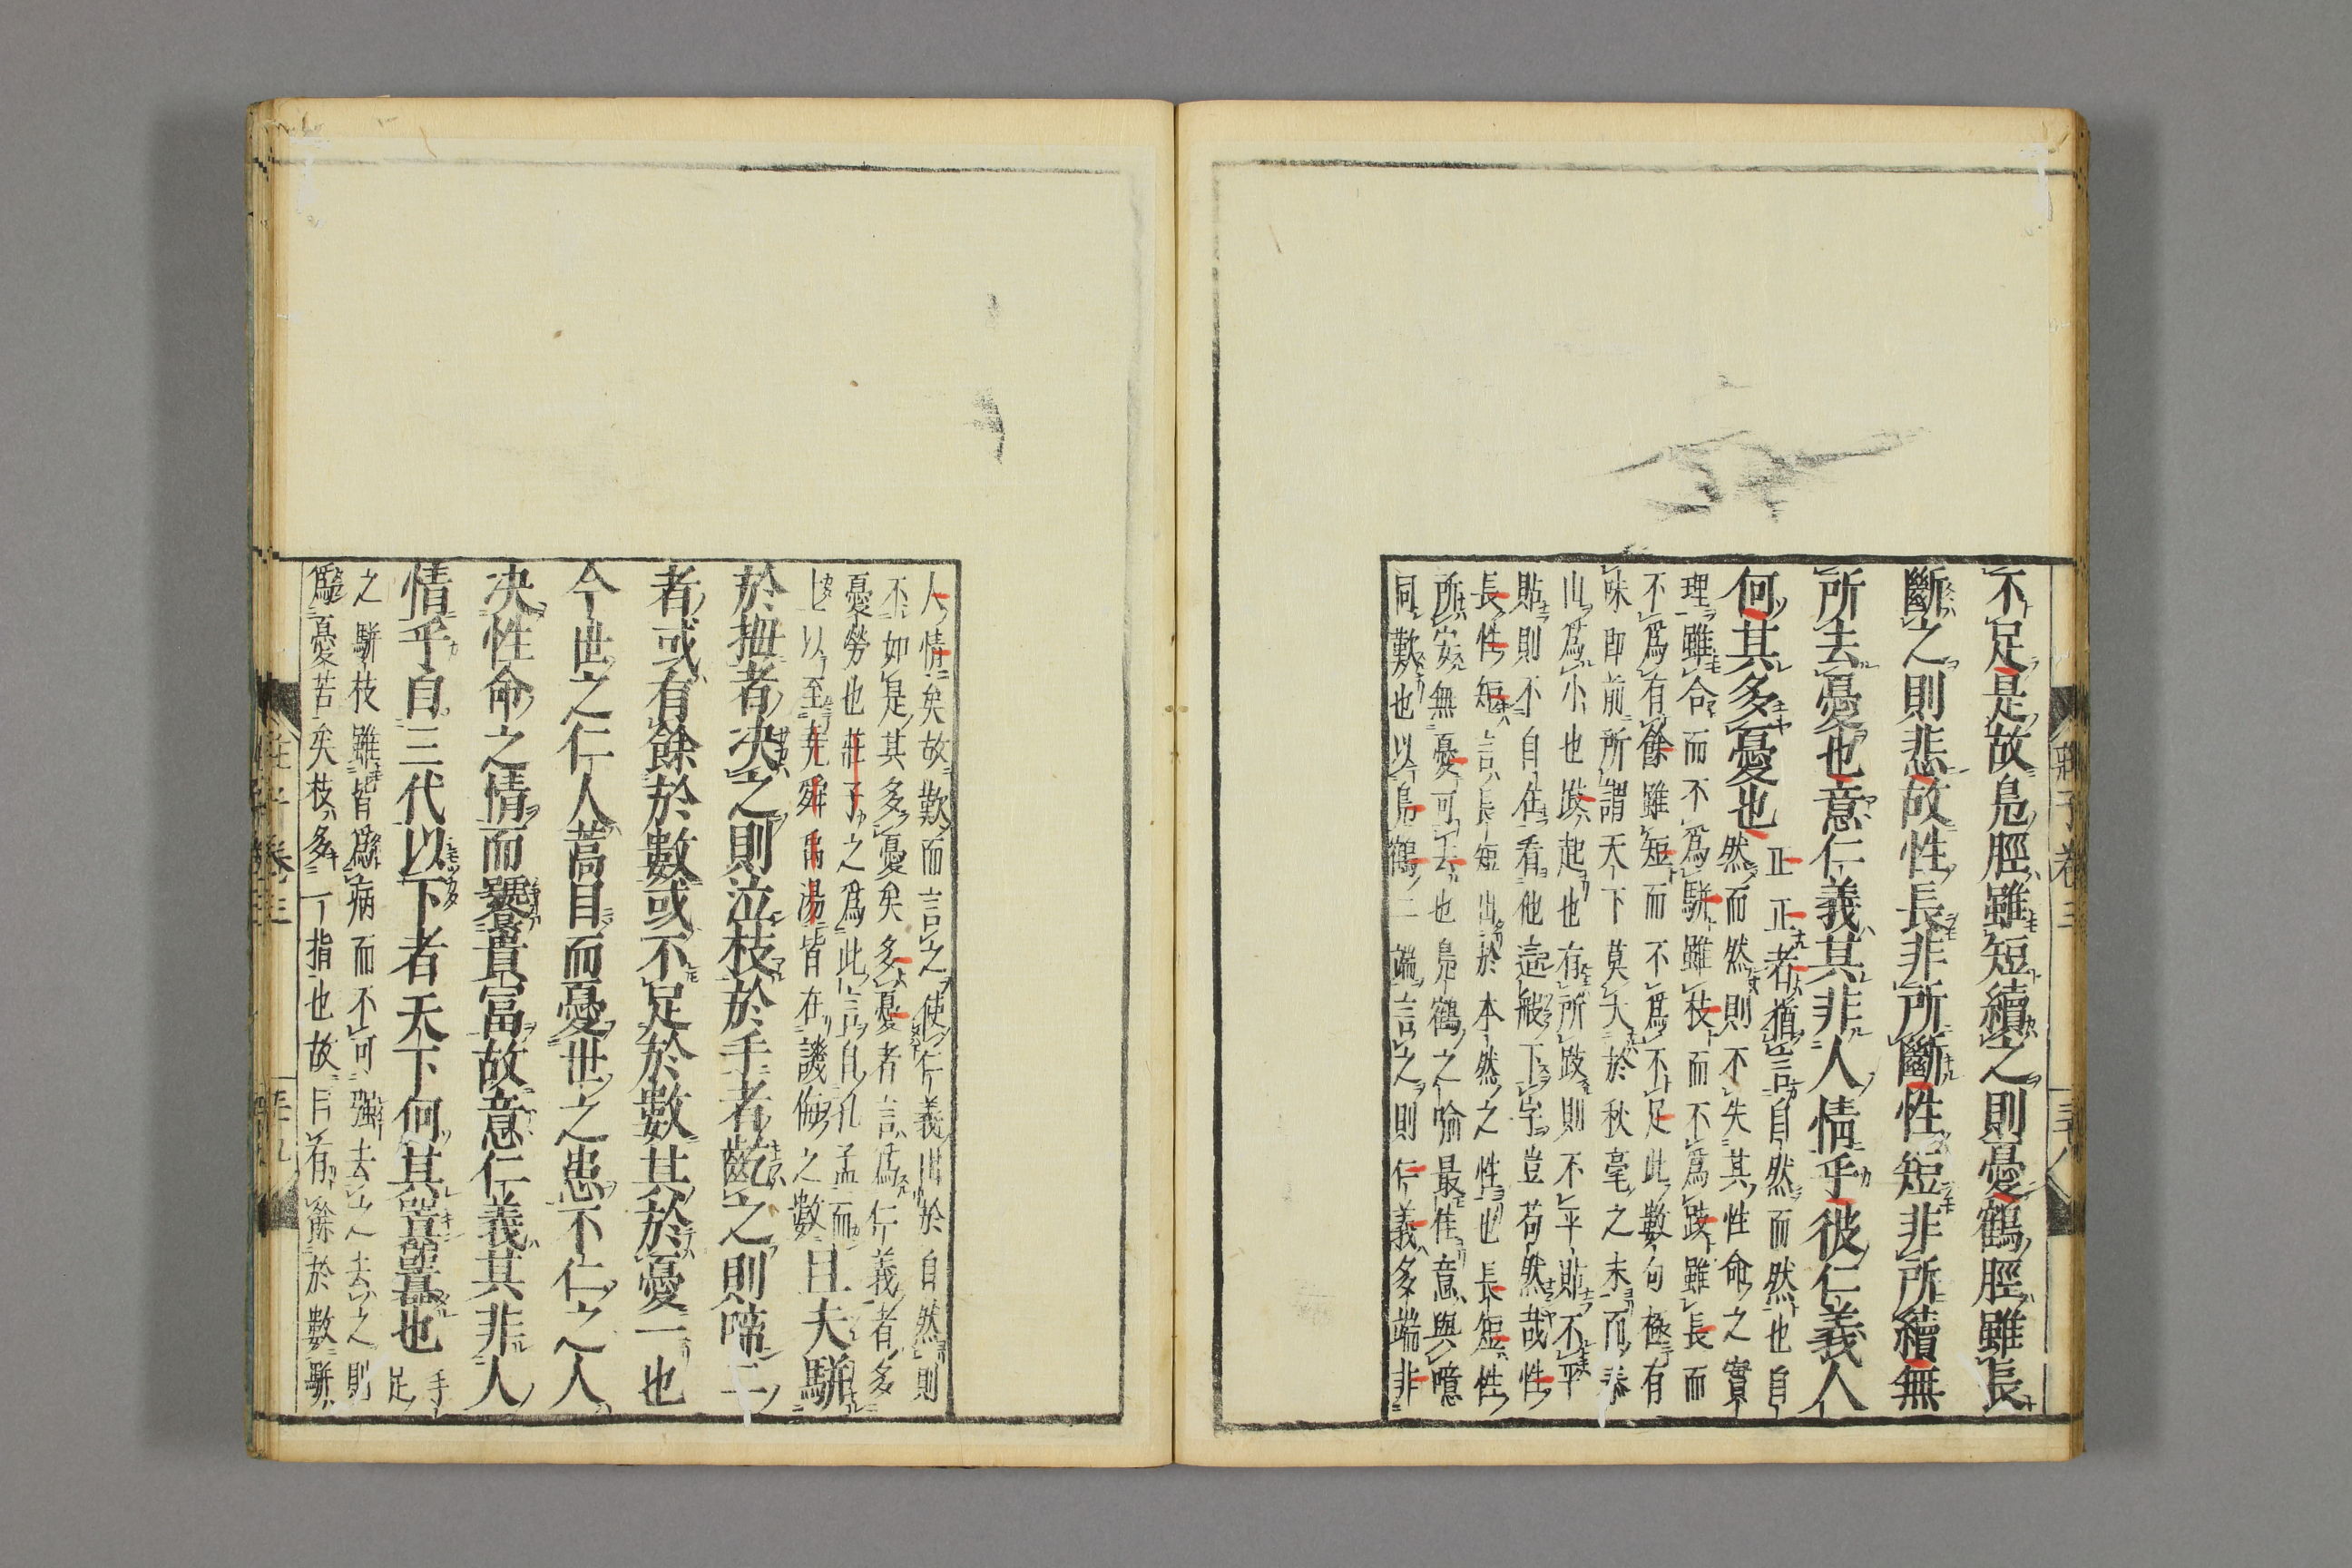 不足是故鳧脛雖短續之則憂鶴脛雖長
斷之則悲故性長非所斷性短非所續無
所去憂也意仁義其非人情乎彼仁義人
何其多憂也
正正者猶言自然而然也自
然而然則不失其性命之實
理雖合而不為駢雖枝而不為跂雖長而
不為有餘雖短而不為不足此數句極有
味即前所謂天下莫大於秋毫之末而泰
山為小也跂起也有所跂則不平貼不平
貼則不自在看他這般下字豈苟然哉性
長性短言長短出於本然之性也長短性
所安無憂可去也鳧鶴之喻最佳意與噫
同歎也以鳧鶴二端言之則仁義多端非
莊子卷三
三十八
人情矣故歎而言之使仁義出於自然則
不如是其多憂矣多憂者言為仁義者多
憂勞也莊子之為此言自孔孟而
上以至堯舜禹湯皆在譏侮之數
且夫駢
於拇者決之則泣枝於手者齕之則啼二
者或有餘於數或不足於數其於憂一也
今世之仁人蒿目而憂世之患不仁之人
決性命之情而饕貴富故意仁義其非人
情乎自三代以下者天下何其囂囂也
手
足
之駢枝雖皆為病而不可強去強去之則
為憂苦矣枝多一指也故曰有餘於數駢